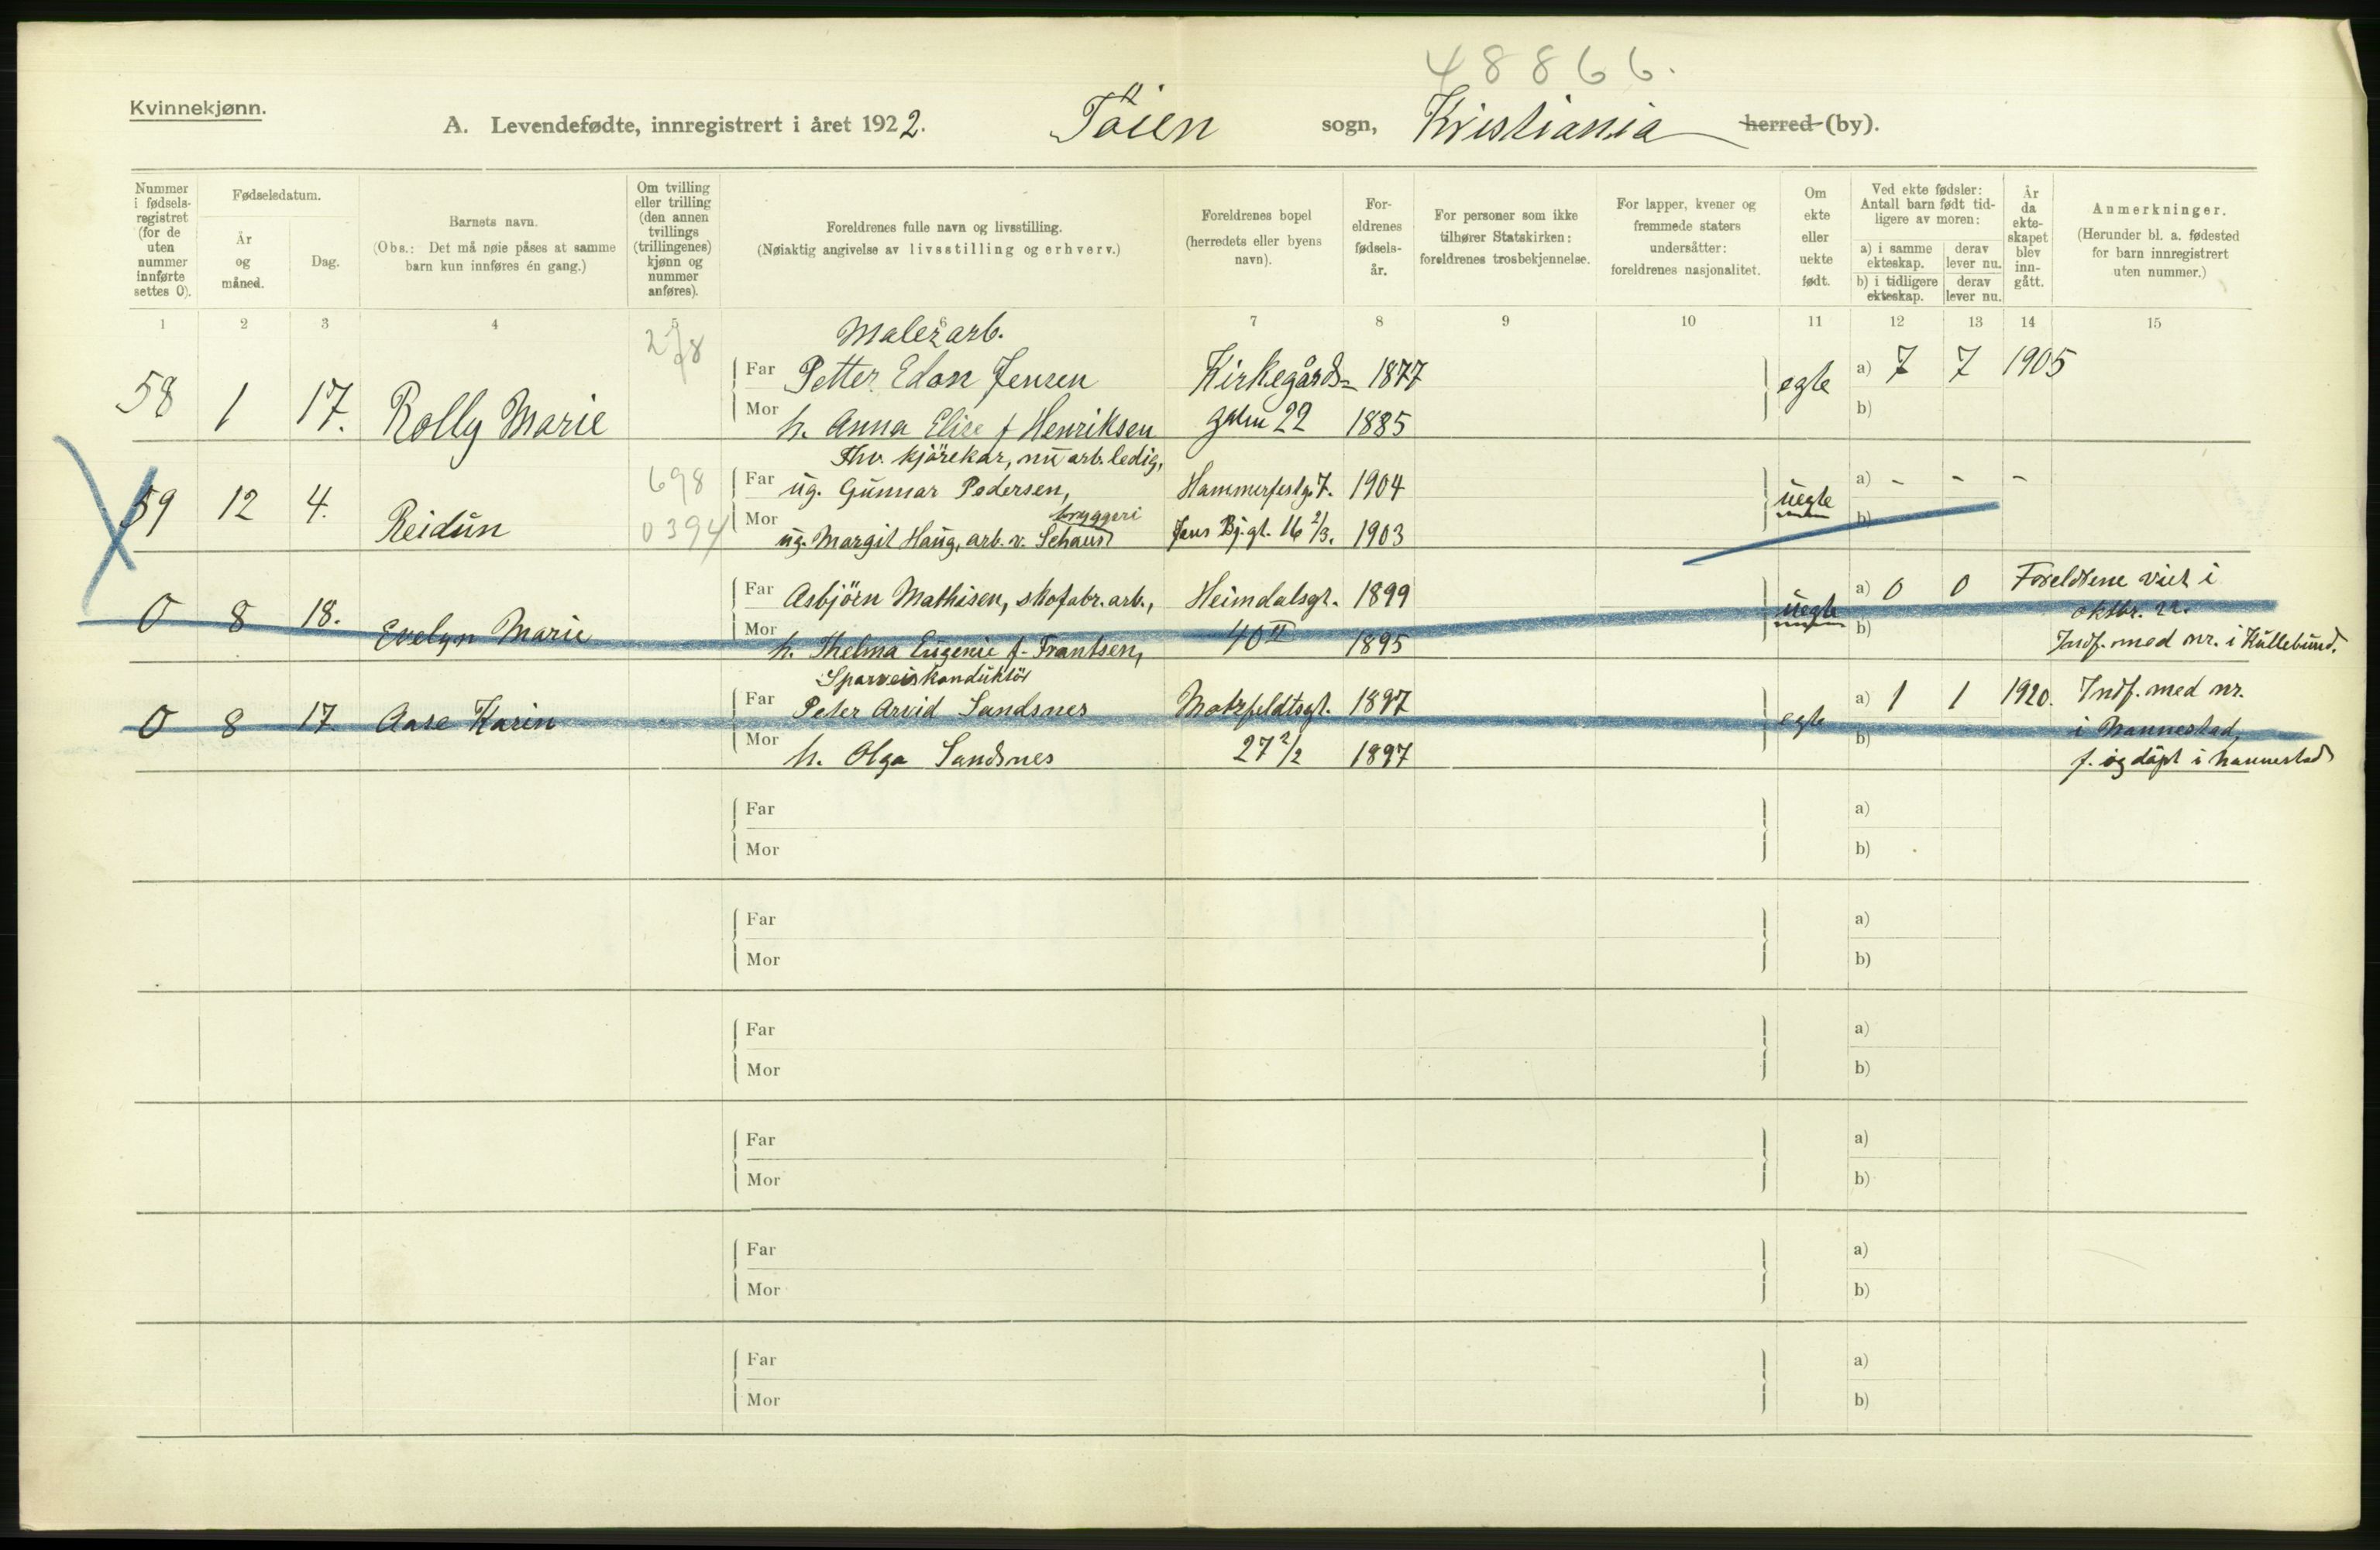 48866.
Kvinnekjønn.
A. Levendefødte, innregistrert i året 1922. Töien sogn, Kristiania herred (by).
Nummer i fødselsregistret (for de uten nummer innførte settes 0).
Fødselsdatum.
År og måned.
Dag.
Barnets navn.
(Obs.: Det må nøie påses at samme barn kun innføres én gang.)
Om tvilling eller trilling (den annen tvillings (trillingenes) kjønn og nummer anføres).
Foreldrenes fulle navn og livsstilling.
(Nøiaktig angivelse av livsstilling og erhverv.)
Foreldrenes bopel (herredets eller byens navn).
Foreldrenes fødselsår.
For personer som ikke tilhører Statskirken: foreldrenes trosbekjennelse.
For lapper, kvener og fremmede staters undersåtter: foreldrenes nasjonalitet.
Om ekte eller uekte født.
Ved ekte fødsler: Antall barn født tidligere av moren:
a) i samme ekteskap. derav lever nu.
b) i tidligere ekteskap. derav lever nu.
År da ekteskapet blev inngått.
Anmerkninger.
(Herunder bl. a. fødested for barn innregistrert uten nummer.)
1 2 3 4 5 6 7 8 9 10 11 12 13 14 15
Malerarb.
58 1 17. Rolly Marie Far Petter Edon Jensen Kirkegårds- 1877 egte a) 7 7 1905
Mor h. Anna Elise f Henriksen gtn 22 1885 b)
Fhv. kjörekar, nu arb. ledig,
59 12 4. Reidun 698 Far ug. Gunnar Pedersen, Hammerfestg. 7. 1904 uegte a) - - -
bryggeri
0394 Mor ug. Margit Haug, arb. v. Schaus Jens Bj.gt. 16 2/3. 1903 b)
0 8 18. Evelyn Marie Far Asbjörn Mathisen, skofabr. arb., Heimdalsgt. 1899 uegte a) 0 0 Foreldrene viet i
oktbr. 22.
Mor h. Thelma Eugenie f. Frantsen, 40 II 1895 b) Indf. med nr. i Kullebund.
Sporveiskonduktör
0 8 17. Aase Karin Far Peter Arvid Sandsnes Motzfeldtsgt. 1897 egte a) 1 1 1920. Indf. med nr.
i Nannestad,
Mor h. Olga Sandsnes 27 2/2 1897 b) f. og döpt i Nannestad
Far a)
Mor b)
Far a)
Mor b)
Far a)
Mor b)
Far a)
Mor b)
Far a)
Mor b)
Far a)
Mor b)